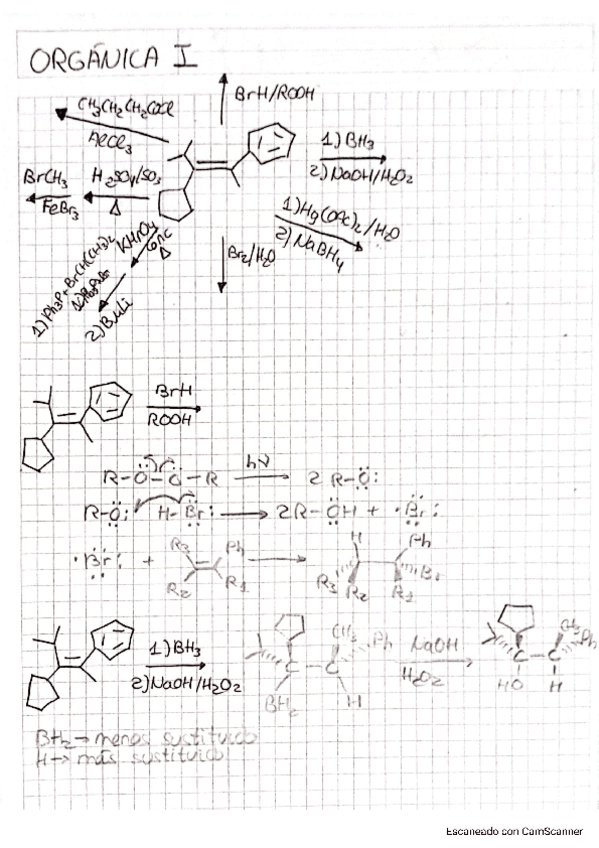 ORGÁNICA I
BrH/ROOH
CH3CH2CH2COCl
AlCl3
1) BH3
2) NaOH/H2O2
BrCH3
FeBr3
H2SO4/SO3
Δ
1) Hg(OAc)2/H2O
2) NaBH4
Br2/H2O
KMnO4
conc
Δ
2) BuLi
BrH
ROOH
R-O-O-R hν 2 R-O:
R-O: H-Br: 2R-OH + ·Br:
·Br: + R3 Ph R2 R1 H Ph R3 R2 R1 Br
1) BH3
2) NaOH/H2O2
CH3 Ph C C BH2 H
NaOH
H2O2
CH3 Ph C C HO H
BH2 → menos sustituido
H → más sustituido
Escaneado con CamScanner